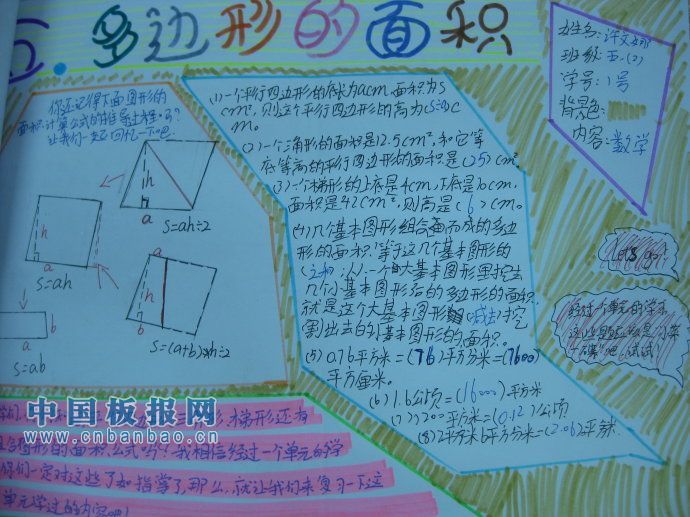 五. 多边形的面积
姓名:许文
班级:五.(2)
学号:1号
背景色:
内容:数学
你还记得下面图形的
面积计算公式的推导过程吗?
让我们一起回忆一下吧.
h
a
S=ah÷2
h
a
S=ah
a
h
b
S=(a+b)×h÷2
b
a
S=ab
(1)一个平行四边形的底长为acm,面积为S
cm²,则这个平行四边形的高为(S÷a)c
m。
(2)一个三角形的面积是12.5cm²,和它等
底等高的平行四边形的面积是(25)cm²
(3)一个梯形的上底是4cm,下底是10cm,
面积是42cm²,则高是(6)cm。
(4)几个基本图形组合而成的多边
形的面积,等于这几个基本图形的
(之和);从一个大基本图形里挖去
几个小基本图形后的多边形的面积
就是这个大基本图形(减去)挖
(割)出去的小基本图形的面积。
(5) 0.76平方米=(76)平方分米=(7600)
平方厘米。
(6) 1.6公顷=(16000)平方米
(7) 1200平方米=(0.12)公顷
(8)2平方米6平方分米=(2.06)平方米
Let's go!
经过一个单元的学习
吧,试试
中国板报网
www.cnbanbao.cn
形,梯形还有
组合图形的面积公式吗?我相信经过一个单元的学
你们一定对这些了如指掌了,那么,就让我们来复习一下这
单元学过的内容吧!